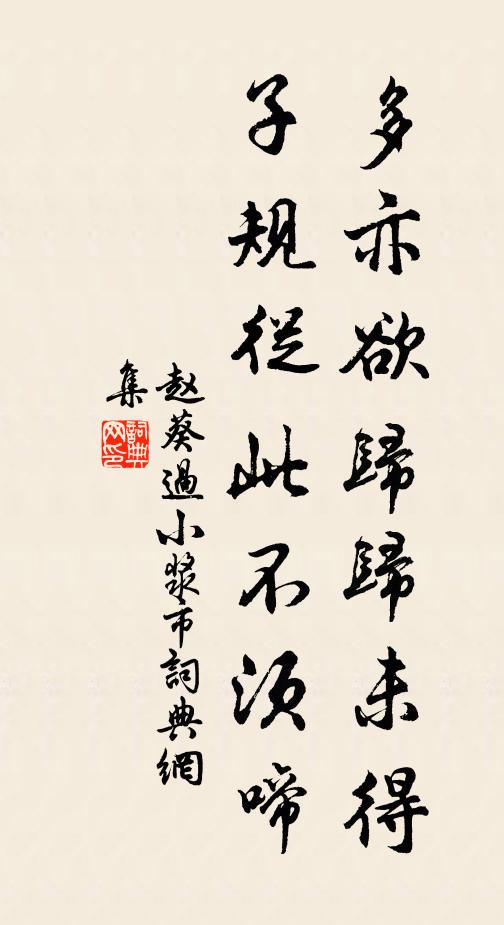 多亦欲歸歸未得
子規從此不須啼
赵葵過小漿市詞典網
集
詞典
网印